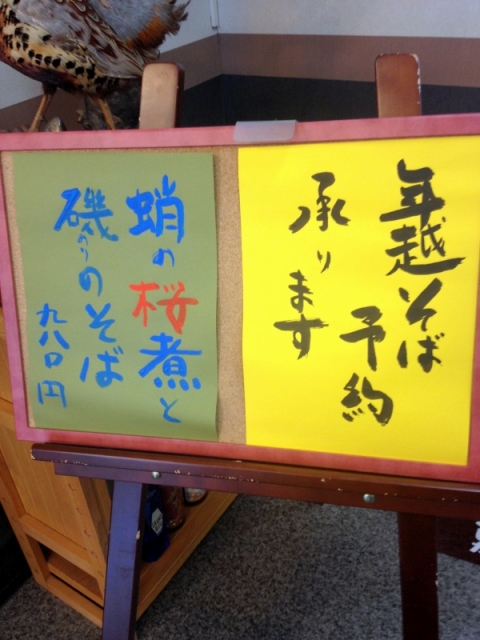 年越そば
予約
承ります
蛸の桜煮と
磯のりのそば
九八〇円